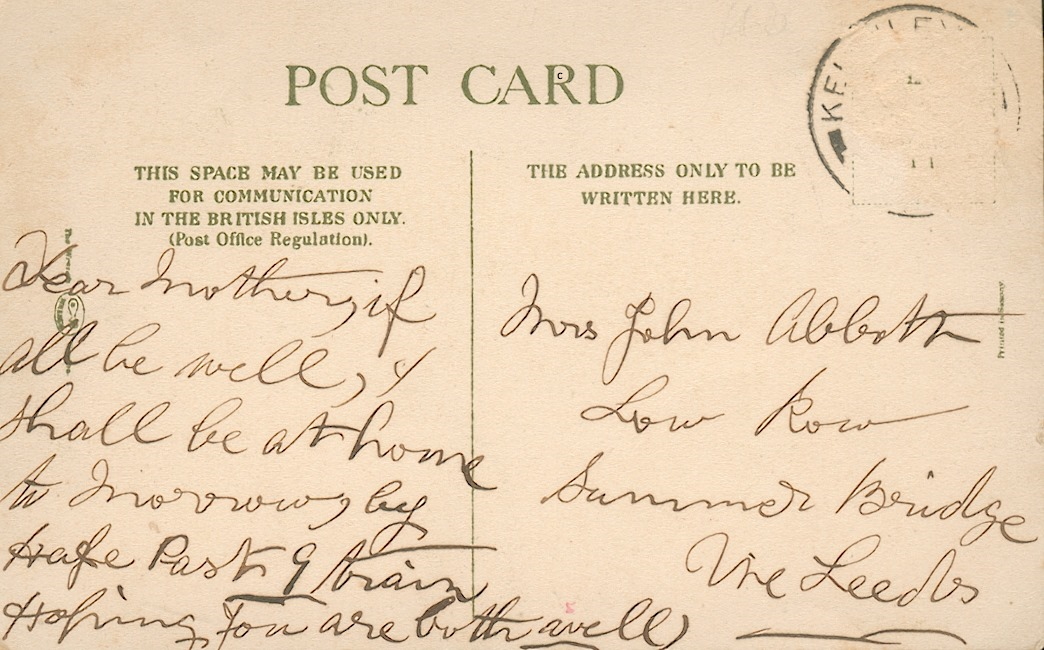 POST CARD
c
KEIGHLEY
11
THIS SPACE MAY BE USED
FOR COMMUNICATION
IN THE BRITISH ISLES ONLY.
(Post Office Regulation).
THE ADDRESS ONLY TO BE
WRITTEN HERE.
Dear Mother, if
all be well, I
shall be at home
to Morrow, by
Hafe Past 9 train
Hoping you are both well
Mrs John Abbott
Low Row
Summer Bridge
Vie Leeds
Printed in Saxony